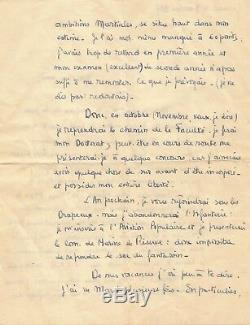 ambitions Martiales, se situe haut dans mon
estime. Je l'ai moi même manqué à 60 points,
j'avais trop de retard en première année et
mon examen (excellent) de seconde année n'a pas
suffi à me remonter. Ce que je prévoyais. (Je ne
dis pas : redoutais).
Donc, en octobre (Novembre, veux je dire)
je reprendrai le chemin de la Faculté. Je prépare
mon Doctorat ; peut être en cours de route me
présenterai-je à quelque concours car j'aimerais
voir quelque chose de sûr avant et être
et possède mon entière liberté.
An prochain, je vous rejoindrai sous les
Drapeaux. Mais j'abandonnerai l'Infanterie :
je m'inscris à l'Aviation Populaire et je présenterai
le Com. de Marine de Pierre. Dure impossibilité
de reprendre le sac du fantassin.
De mes vacances j'ai peu à te dire.
J'ai vu Marc plusieurs fois. En particulier,
WorthPoint